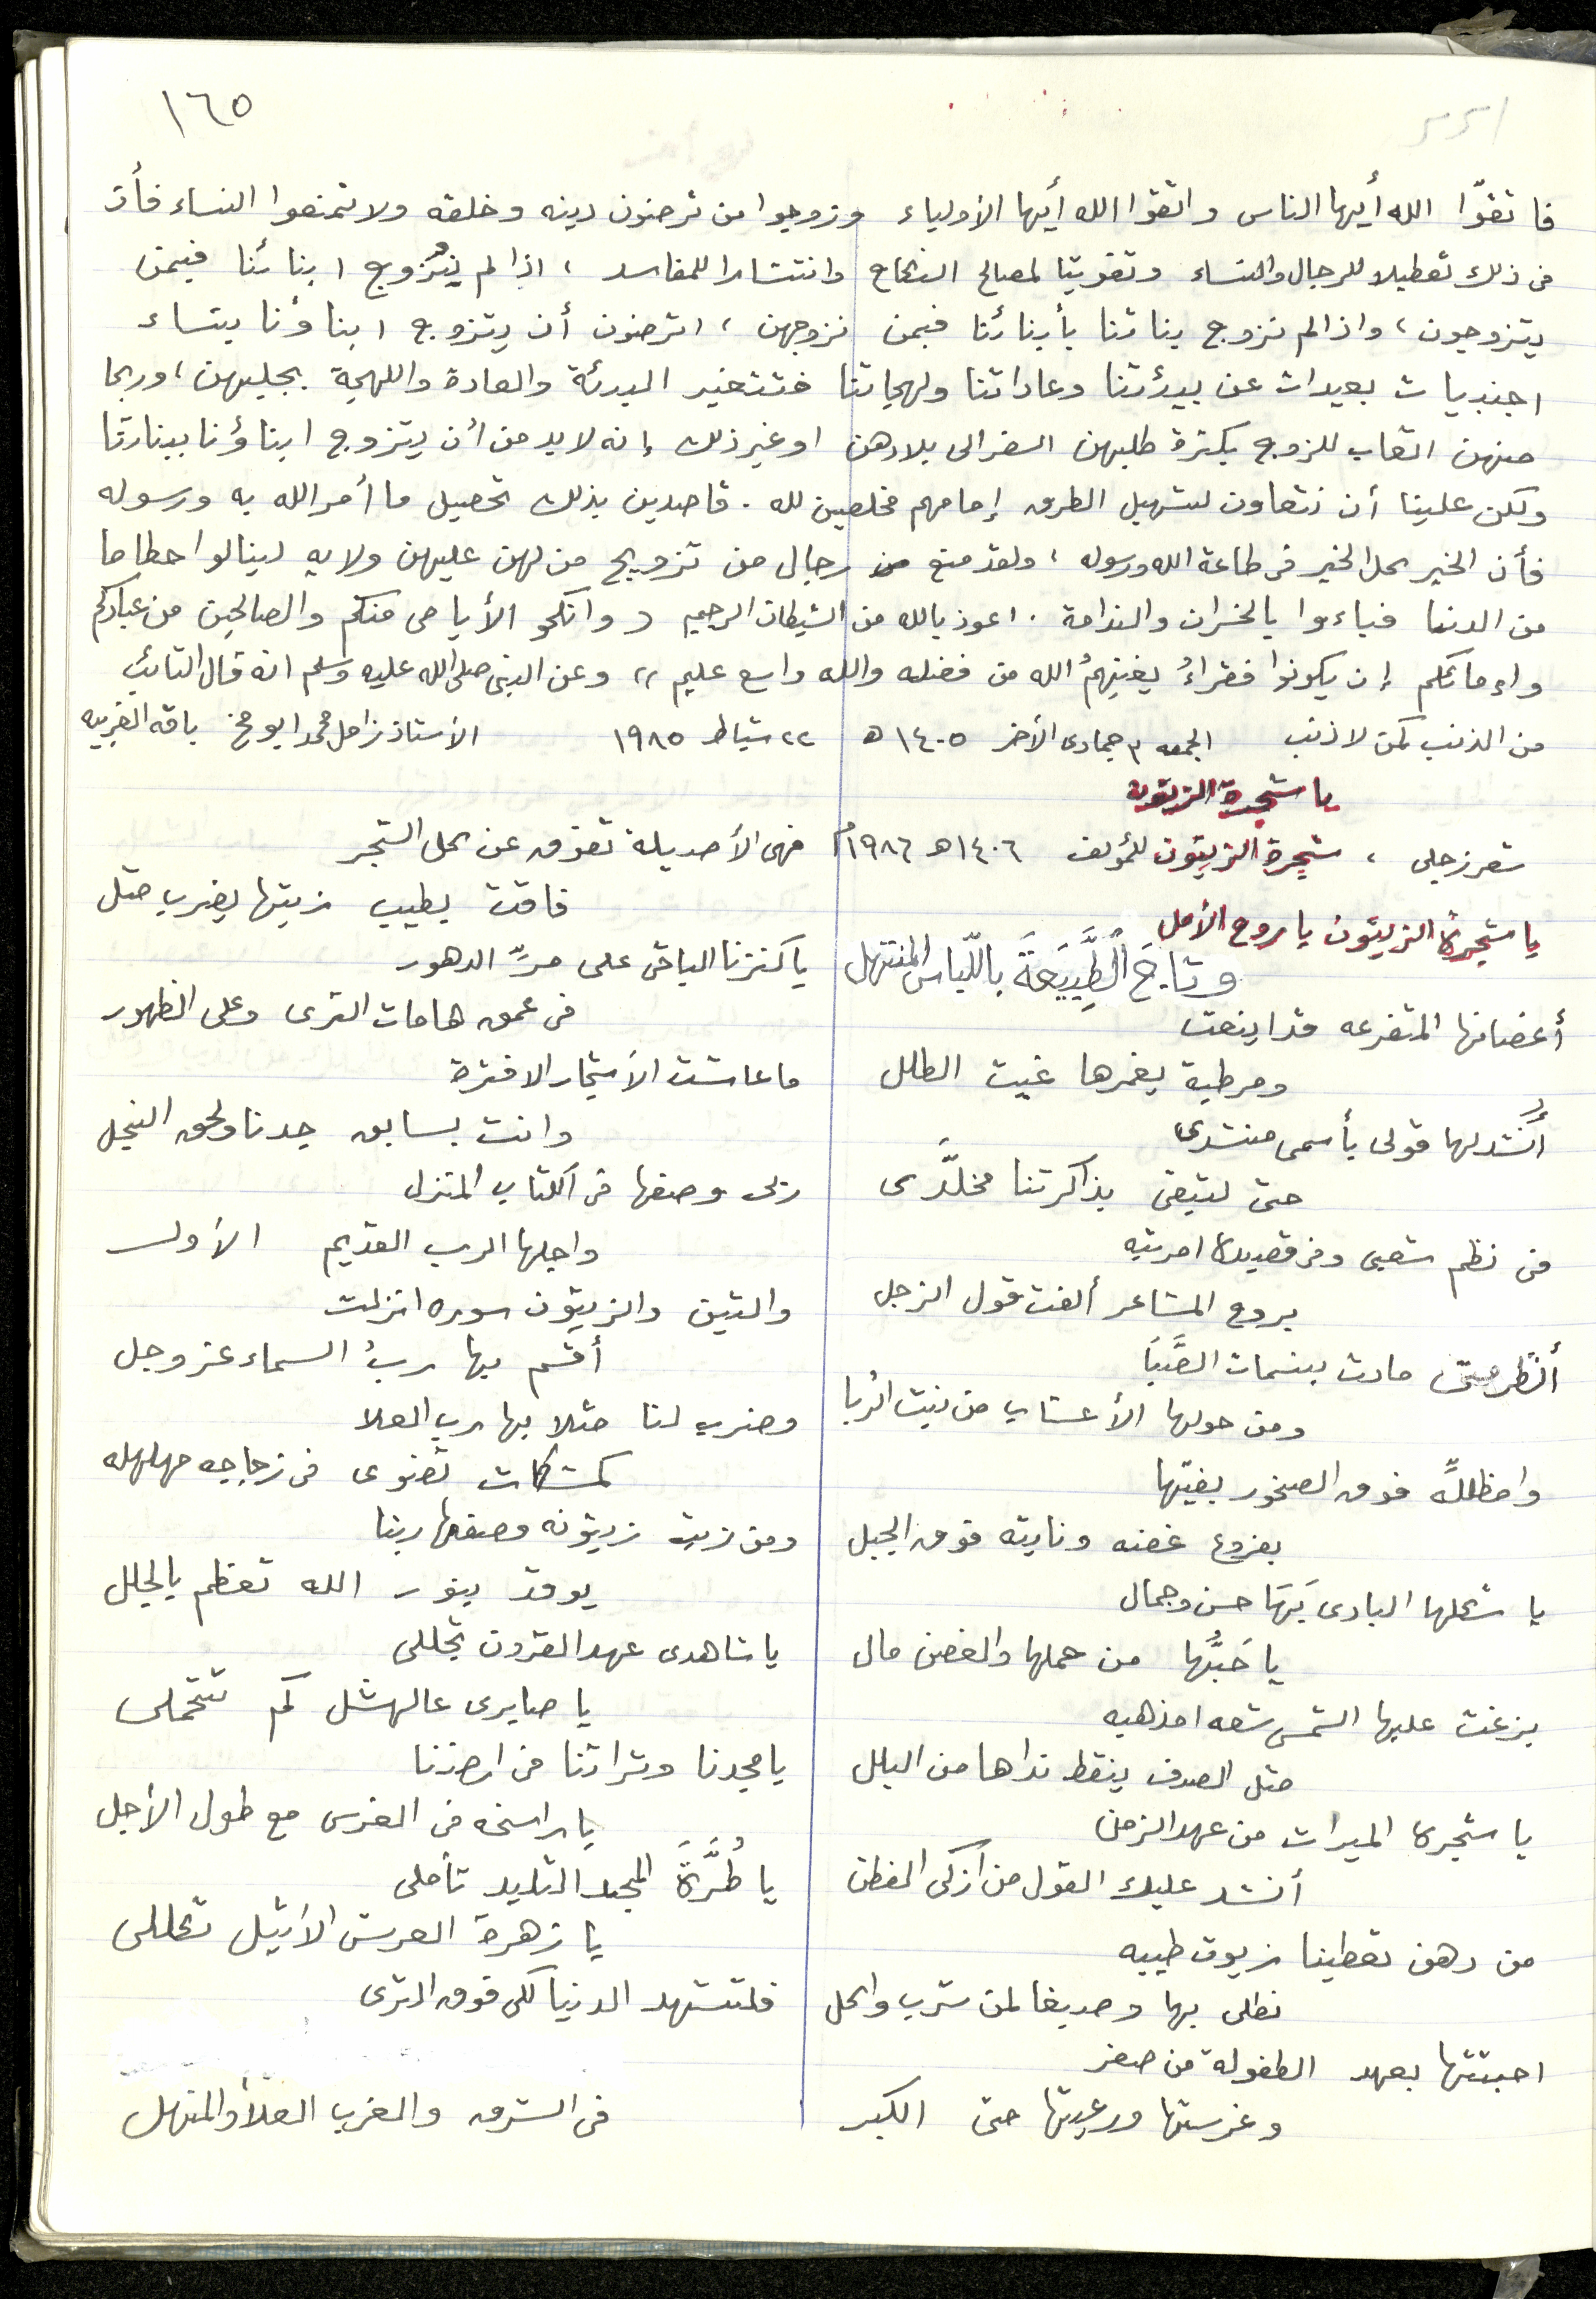 ١٦٥
فاتقوّا الله أيها الناس واتقوا الله أيها الأولياء وزوجوا من ترضون دينه وخلقه ولا تمنعوا النساء فأن
في ذلك تعطيلا للرجال والنساء وتفويتا لمصالح النكاح وانتشارا للمفاسد ، اذا لم يتزوج ابنائنا فيمن
يتزوجون ، واذا لم نزوج بناتنا بأبنائنا فبمن نزوجهن ، اترضون أن يتزوج ابناؤنا بنساء
اجنبيات بعيدات عن بيئتنا وعاداتنا ولهجاتنا فتتغير البيئة والعادة واللهجة بجلبهن ، وربما
منهن اتعاب للزوج بكثرة طلبهن السفر الى بلادهن او غير ذلك إنه لا بد من أن يتزوج ابناؤنا ببناتنا
ولكن علينا أن نتعاون لتسهيل الطرق إمامهم مخلصين لله . قاصدين بذلك تحصيل ما أمر الله به ورسوله
فأن الخير كل الخير في طاعة الله ورسوله ، ولقد منع من رجال من تزويج من لهن عليهن ولايه لينالوا حطاما
من الدنيا فباءوا بالخسران والندامة . اعوذ بالله من الشيطان الرجيم (( وانكحو الأيامى منكم والصالحين من عبادكم
وإمائكم إن يكونوا فقراءُ يغنِهمُ الله من فضله والله واسع عليم )) وعن النبي صلى الله عليه وسلم انه قال التائب
من الذنب كمن لا ذنب الجمعه ٣ جمادى الأخر ١٤٠٥ ه ٢٢ شباط ١٩٨٥ الأستاذ زامل محمد ابو مخ باقه الغربيه
يا شجرة الزيتون
شعر زجلي ، شجرة الزيتون للمؤلف ١٤٠٦ ه ١٩٨٦ م
يا شجرة الزيتون يا روح الأمل
وتاجَ الطَّبِيَعَةَ باللّباس المنتهل
أغصانها المتفرعه قد اينعت
ومرطبة يغمرها غيث الطلل
أُنشد لها قولي بأسمى منشدى
حتى لتبقى بذاكرتنا مخلَّدى
في نظم شعبي وفي قصيدة امرتبه
بروح المشاعر ألفت قول الزجل
أنظر متى مادت بنسمات الصَّبَا
ومن حولها الأعشاب من نبت الربا
وامظللةً فوق الصخور بفيّها
بفروع غضنه ونابته فوق الجبل
يا شكلها البادي بَهَا حسن وجمال
يا حَبُّها من حملها والغصن مال
بزغت عليها الشمس شعه امذهبه
مثل الصدف ينقط نداها من البلل
يا شجرة الميراث من عهد الزمن
أنشد عليك القول من أزكى الفطن
من دهن تعطينا زيوت طيبه
نطلى بها وصبغا لمن شرب واكل
احببتها بعهد الطفولة من صغر
وغرستها ورعيتها حتى الكبر
فهي الأصيلة تفوق عن كل الشجر
فاقت بطيب زيتها يضرب مثل
يا كنزنا الباقى على مرِّ الدهور
في عمق هامات الثرى وعلى الظهور
ما عاشت الأشجار الا فترة
وانت بسابق جدنا ولحق النجل
ربى وصفها في الكتاب المنزل
واجلها الرب القديم الأول
والتين والزيتون سوره انزلت
أقسم بها ربُ السماء عز وجل
وضرب لنا مثلا بها رب العلا
كمشكات تضوى في زجاجه مهلهله
ومن زيت زيتونه وصفها ربنا
يوقد بنور الله تعظم بالجلل
يا شاهدى عهد القرون تجللى
يا صابرى عالهشل كم تتحملى
يا مجدنا وتراثنا في ارضنا
يا راسخه في الغرس مع طول الأجل
يا طُرَّةَ المجد التليد تأملى
يا زهرة العرش الأثيل تكللى
فلتشهد الدنيا لكى فوق الثرى
في الشرق والمغرب العلا والمنهل